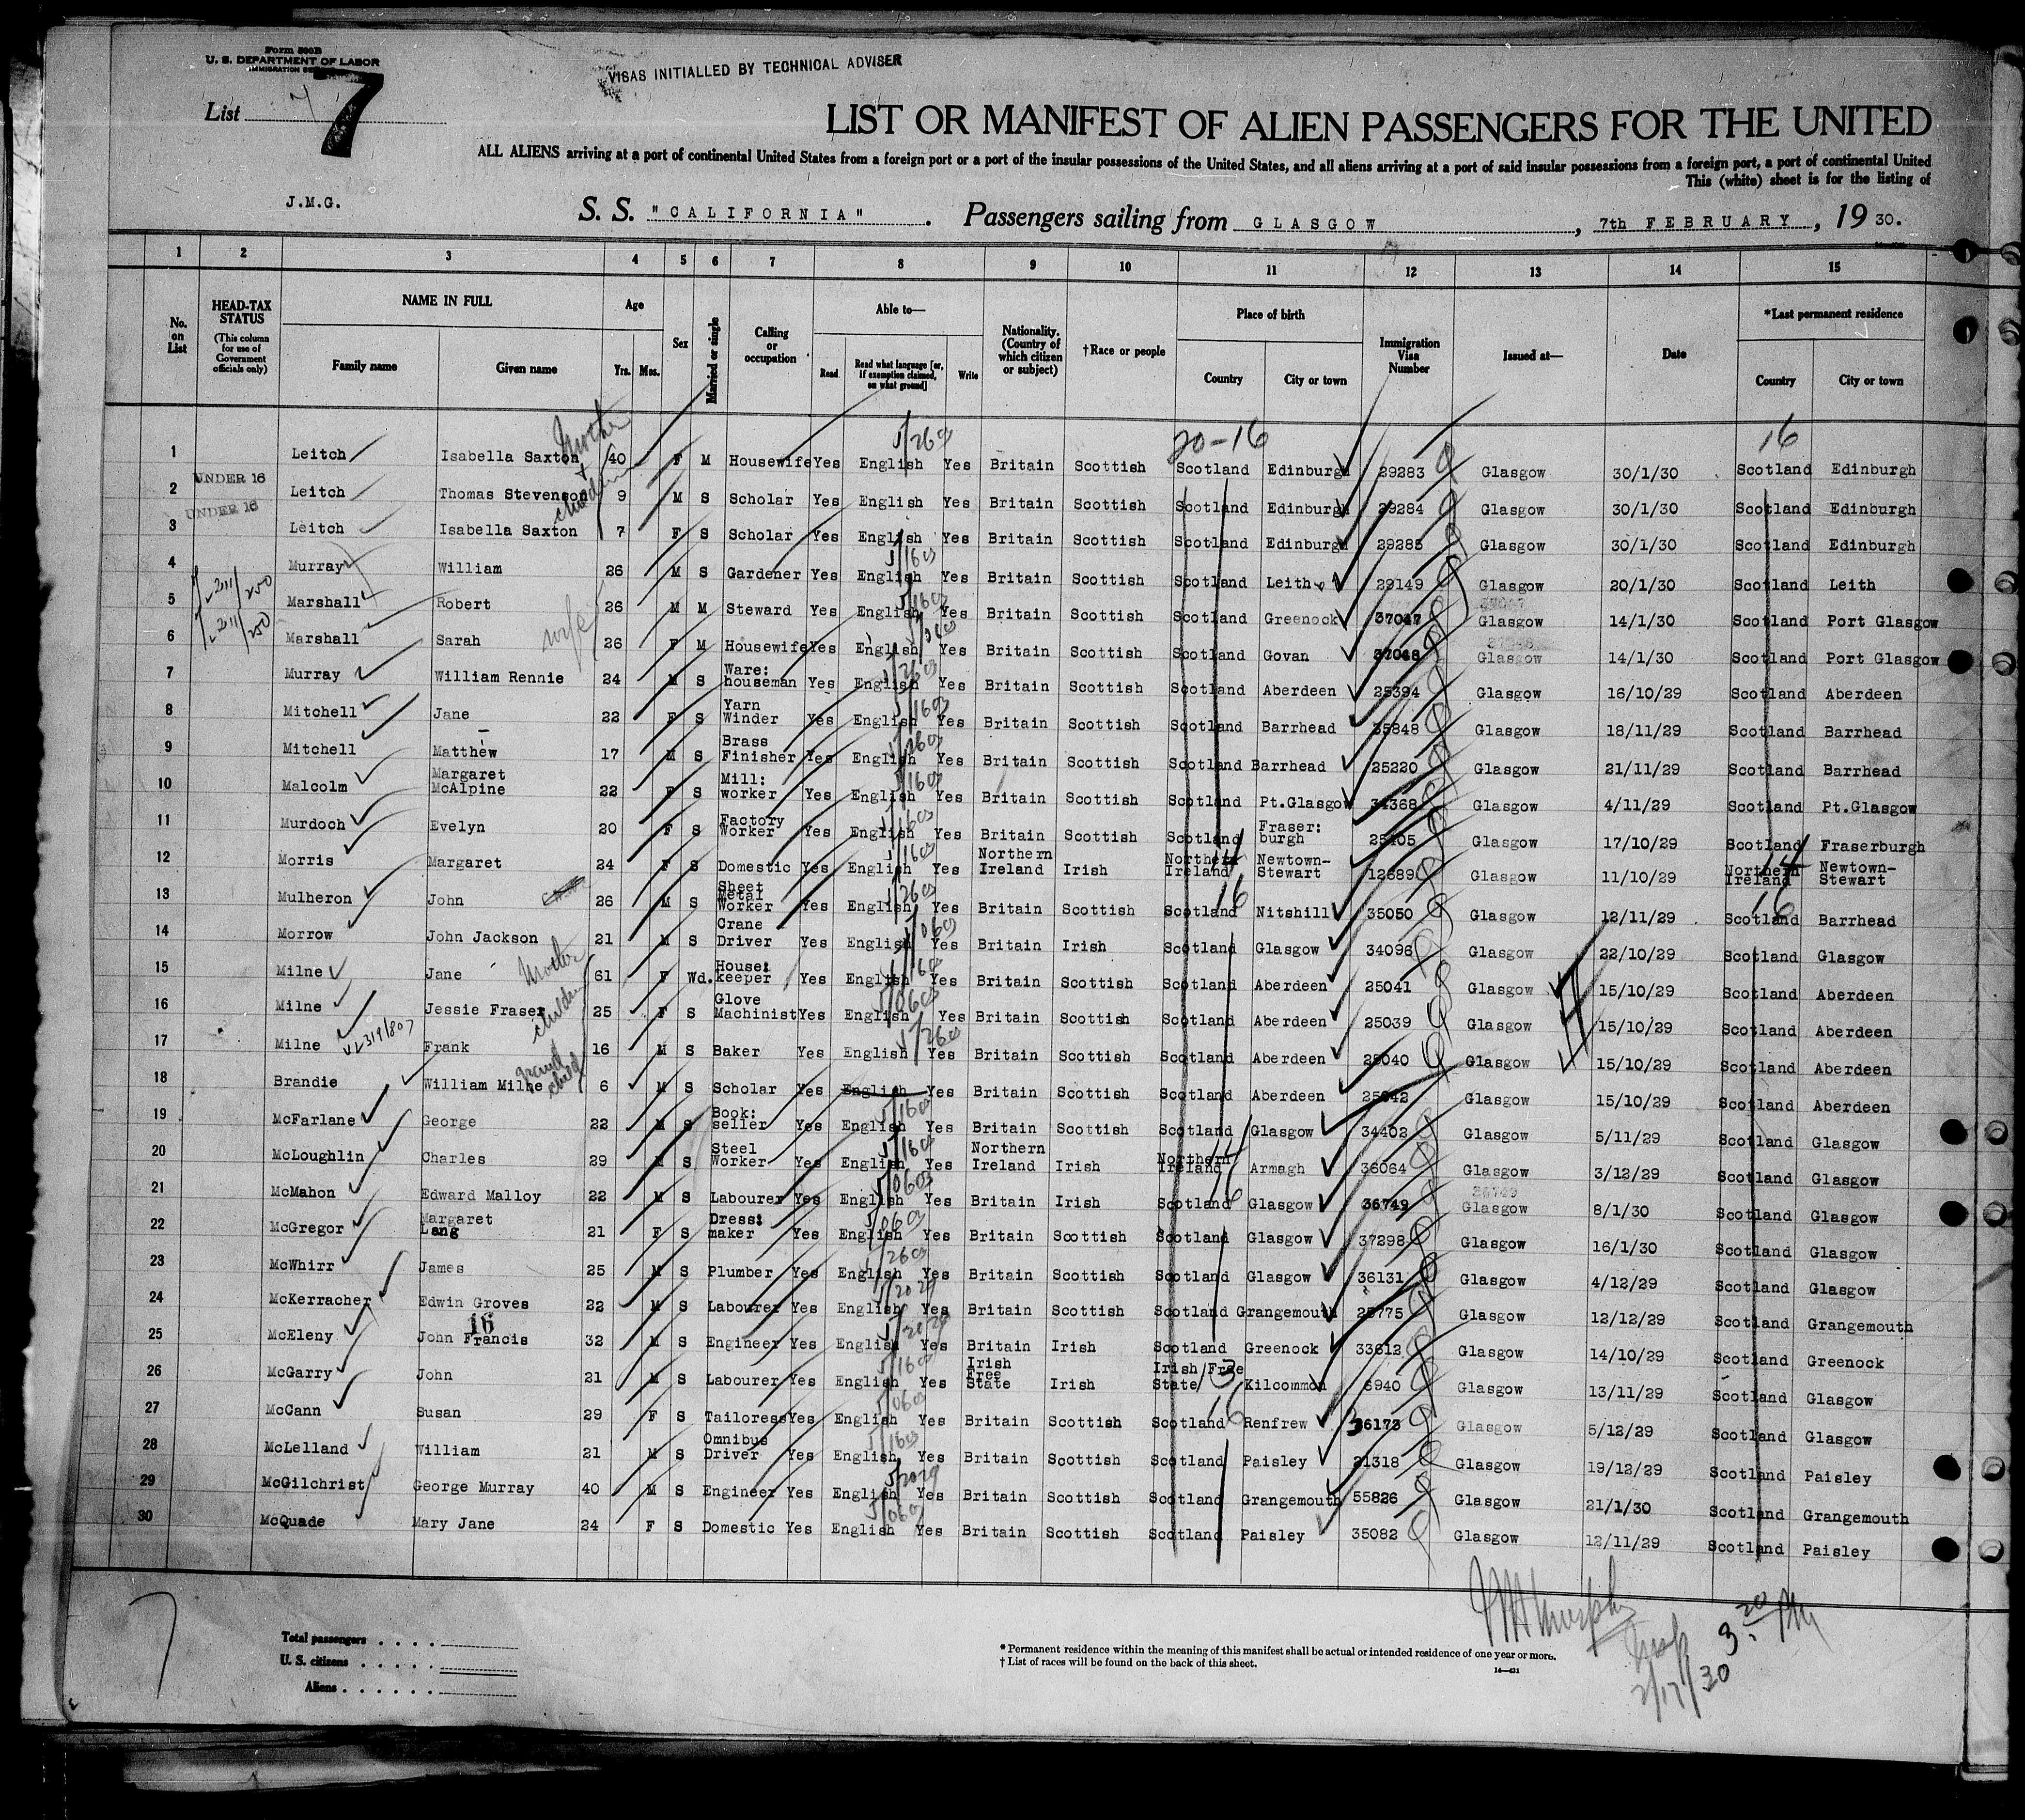 Form 500B
U. S. DEPARTMENT OF LABOR
VISAS INITIALLED BY TECHNICAL ADVISER
List 7
LIST OR MANIFEST OF ALIEN PASSENGERS FOR THE UNITED
ALL ALIENS arriving at a port of continental United States from a foreign port or a port of the insular possessions of the United States, and all aliens arriving at a port of said insular possessions from a foreign port, a port of continental United
This (white) sheet is for the listing of
J.M.G.
S. S. "CALIFORNIA". Passengers sailing from GLASGOW, 7th FEBRUARY, 19 30.
1 2 3 4 5 6 7 8 9 10 11 12 13 14 15
No. on List
HEAD-TAX STATUS
(This column for use of Government officials only)
NAME IN FULL
Family name Given name
Age
Yrs. Mos.
Sex
Married or single
Calling or occupation
Able to—
Read Read what language [or, if exemption claimed, on what ground] Write
Nationality. (Country of which citizen or subject)
†Race or people
Place of birth
Country City or town
Immigration Visa Number
Issued at—
Date
*Last permanent residence
Country City or town
20-16 16
1 Leitch Isabella Saxton Mother 40 F M Housewife Yes English Yes Britain Scottish Scotland Edinburgh 29283 Glasgow 30/1/30 Scotland Edinburgh
2 UNDER 16 Leitch Thomas Stevenson + children 9 M S Scholar Yes English Yes Britain Scottish Scotland Edinburgh 29284 Glasgow 30/1/30 Scotland Edinburgh
3 UNDER 16 Leitch Isabella Saxton 7 F S Scholar Yes English Yes Britain Scottish Scotland Edinburgh 29285 Glasgow 30/1/30 Scotland Edinburgh
4 Murray William 26 M S Gardener Yes English Yes Britain Scottish Scotland Leith 29149 Glasgow 20/1/30 Scotland Leith
5 Marshall Robert 26 M M Steward Yes English Yes Britain Scottish Scotland Greenock 37047 Glasgow 14/1/30 Scotland Port Glasgow
6 Marshall Sarah wife 26 F M Housewife Yes English Yes Britain Scottish Scotland Govan 37048 Glasgow 14/1/30 Scotland Port Glasgow
7 Murray William Rennie 24 M S Ware: houseman Yes English Yes Britain Scottish Scotland Aberdeen 25394 Glasgow 16/10/29 Scotland Aberdeen
8 Mitchell Jane 22 F S Yarn Winder Yes English Yes Britain Scottish Scotland Barrhead 35848 Glasgow 18/11/29 Scotland Barrhead
9 Mitchell Matthew 17 M S Brass Finisher Yes English Yes Britain Scottish Scotland Barrhead 25220 Glasgow 21/11/29 Scotland Barrhead
10 Malcolm Margaret McAlpine 22 F S Mill: worker Yes English Yes Britain Scottish Scotland Pt.Glasgow 34368 Glasgow 4/11/29 Scotland Pt.Glasgow
11 Murdoch Evelyn 20 F S Factory Worker Yes English Yes Britain Scottish Scotland Fraser: burgh 25405 Glasgow 17/10/29 Scotland Fraserburgh
12 Morris Margaret 24 F S Domestic Yes English Yes Northern Ireland Irish Northern Ireland 14 Newtown-Stewart 12689 Glasgow 11/10/29 Northern Ireland 14 Newtown-Stewart
13 Mulheron John 26 M S Sheet Metal Worker Yes English Yes Britain Scottish Scotland 16 Nitshill 35050 Glasgow 12/11/29 Scotland 16 Barrhead
14 Morrow John Jackson 21 M S Crane Driver Yes English Yes Britain Irish Scotland Glasgow 34096 Glasgow 22/10/29 Scotland Glasgow
15 Milne Jane Mother 61 F Wd. House: keeper Yes English Yes Britain Scottish Scotland Aberdeen 25041 Glasgow 15/10/29 Scotland Aberdeen
16 Milne Jessie Fraser children 25 F S Glove Machinist Yes English Yes Britain Scottish Scotland Aberdeen 25039 Glasgow 15/10/29 Scotland Aberdeen
17 Milne Frank 16 M S Baker Yes English Yes Britain Scottish Scotland Aberdeen 25040 Glasgow 15/10/29 Scotland Aberdeen
18 Brandie William Milne grand child 6 M S Scholar Yes English Yes Britain Scottish Scotland Aberdeen 25042 Glasgow 15/10/29 Scotland Aberdeen
19 McFarlane George 22 M S Book: seller Yes English Yes Britain Scottish Scotland Glasgow 34402 Glasgow 5/11/29 Scotland Glasgow
20 McLoughlin Charles 29 M S Steel Worker Yes English Yes Northern Ireland Irish Northern Ireland 14 Armagh 36064 Glasgow 3/12/29 Scotland Glasgow
21 McMahon Edward Malloy 22 M S Labourer Yes English Yes Britain Irish Scotland 16 Glasgow 36749 Glasgow 8/1/30 Scotland Glasgow
22 McGregor Margaret Lang 21 F S Dress: maker Yes English Yes Britain Scottish Scotland Glasgow 37298 Glasgow 16/1/30 Scotland Glasgow
23 McWhirr James 25 M S Plumber Yes English Yes Britain Scottish Scotland Glasgow 36131 Glasgow 4/12/29 Scotland Glasgow
24 McKerracher Edwin Groves 22 M S Labourer Yes English Yes Britain Scottish Scotland Grangemouth 25775 Glasgow 12/12/29 Scotland Grangemouth
25 McEleny John Francis 16 32 M S Engineer Yes English Yes Britain Irish Scotland Greenock 33612 Glasgow 14/10/29 Scotland Greenock
26 McGarry John 21 M S Labourer Yes English Yes Irish Free State Irish Irish Free State 3 Kilcommon 6940 Glasgow 13/11/29 Scotland Glasgow
27 McCann Susan 29 F S Tailoress Yes English Yes Britain Scottish Scotland 16 Renfrew 36173 Glasgow 5/12/29 Scotland Glasgow
28 McLelland William 21 M S Omnibus Driver Yes English Yes Britain Scottish Scotland Paisley 21318 Glasgow 19/12/29 Scotland Paisley
29 McGilchrist George Murray 40 M S Engineer Yes English Yes Britain Scottish Scotland Grangemouth 55826 Glasgow 21/1/30 Scotland Grangemouth
30 McQuade Mary Jane 24 F S Domestic Yes English Yes Britain Scottish Scotland Paisley 35082 Glasgow 12/11/29 Scotland Paisley
7
Total passengers
U. S. citizens
Aliens
* Permanent residence within the meaning of this manifest shall be actual or intended residence of one year or more.
† List of races will be found on the back of this sheet.
Insp
2/17/30
3.20 PM